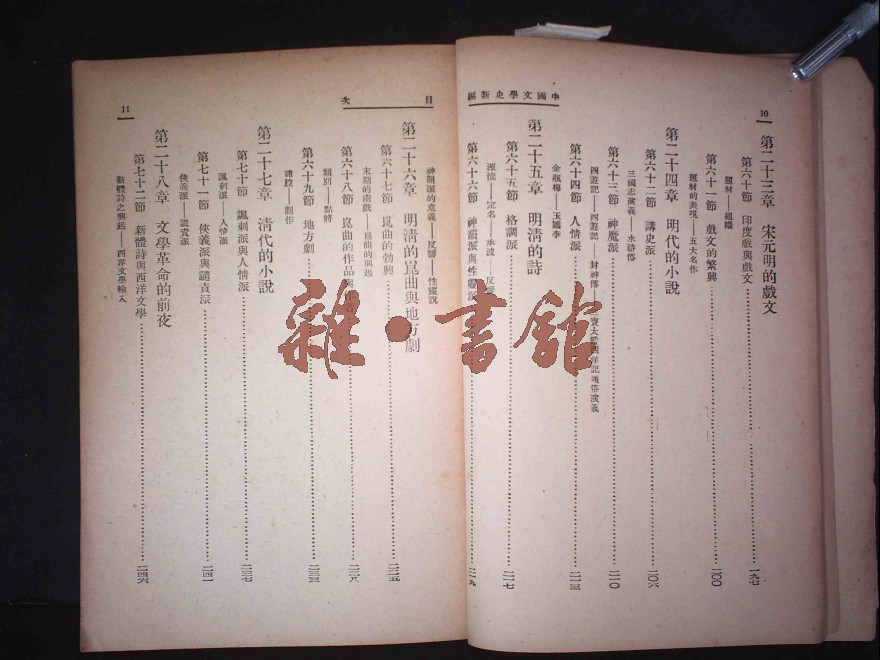 中國文學史新編
10
第二十三章 宋元明的戲文
第六十節 印度戲與戲文……一九七
題材——組織
第六十一節 戲文的繁興……二〇〇
題材的表現——五大名作
第二十四章 明代的小說
第六十二節 講史派……二〇六
三國志演義——水滸傳
第六十三節 神魔派……二一〇
四遊記——西遊記——封神傳——三寶太監西洋記通俗演義
第六十四節 人情派……二一三
金瓶梅——玉嬌李
第二十五章 明清的詩
第六十五節 格調派……二一七
源流——定名——承波——反響
第六十六節 神韻派與性靈派……二一九
目次
11
神韻派的意義——反響——性靈說
第二十六章 明清的崑曲與地方劇
第六十七節 崑曲的勃興……二二五
末期的南戲——崑曲的興起
第六十八節 崑曲的作品與
類別——點將
第六十九節 地方劇
諸腔——劇作
第二十七章 清代的小說
第七十節 諷刺派與人情派……二三七
諷刺派——人情派
第七十一節 俠義派與譴責派……二四一
俠義派——譴責派
第二十八章 文學革命的前夜
第七十二節 新體詩與西洋文學……二四六
新體詩之興起——西洋文學輸入
雜·書館